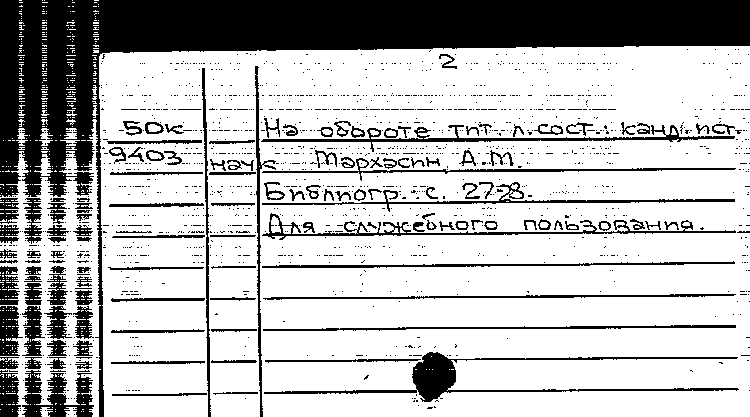 2
50к На обороте тит. л. сост.: канд. ист.
9403 наук Мархасин А.М.
Библиогр.: с. 27-28.
Для служебного пользования.